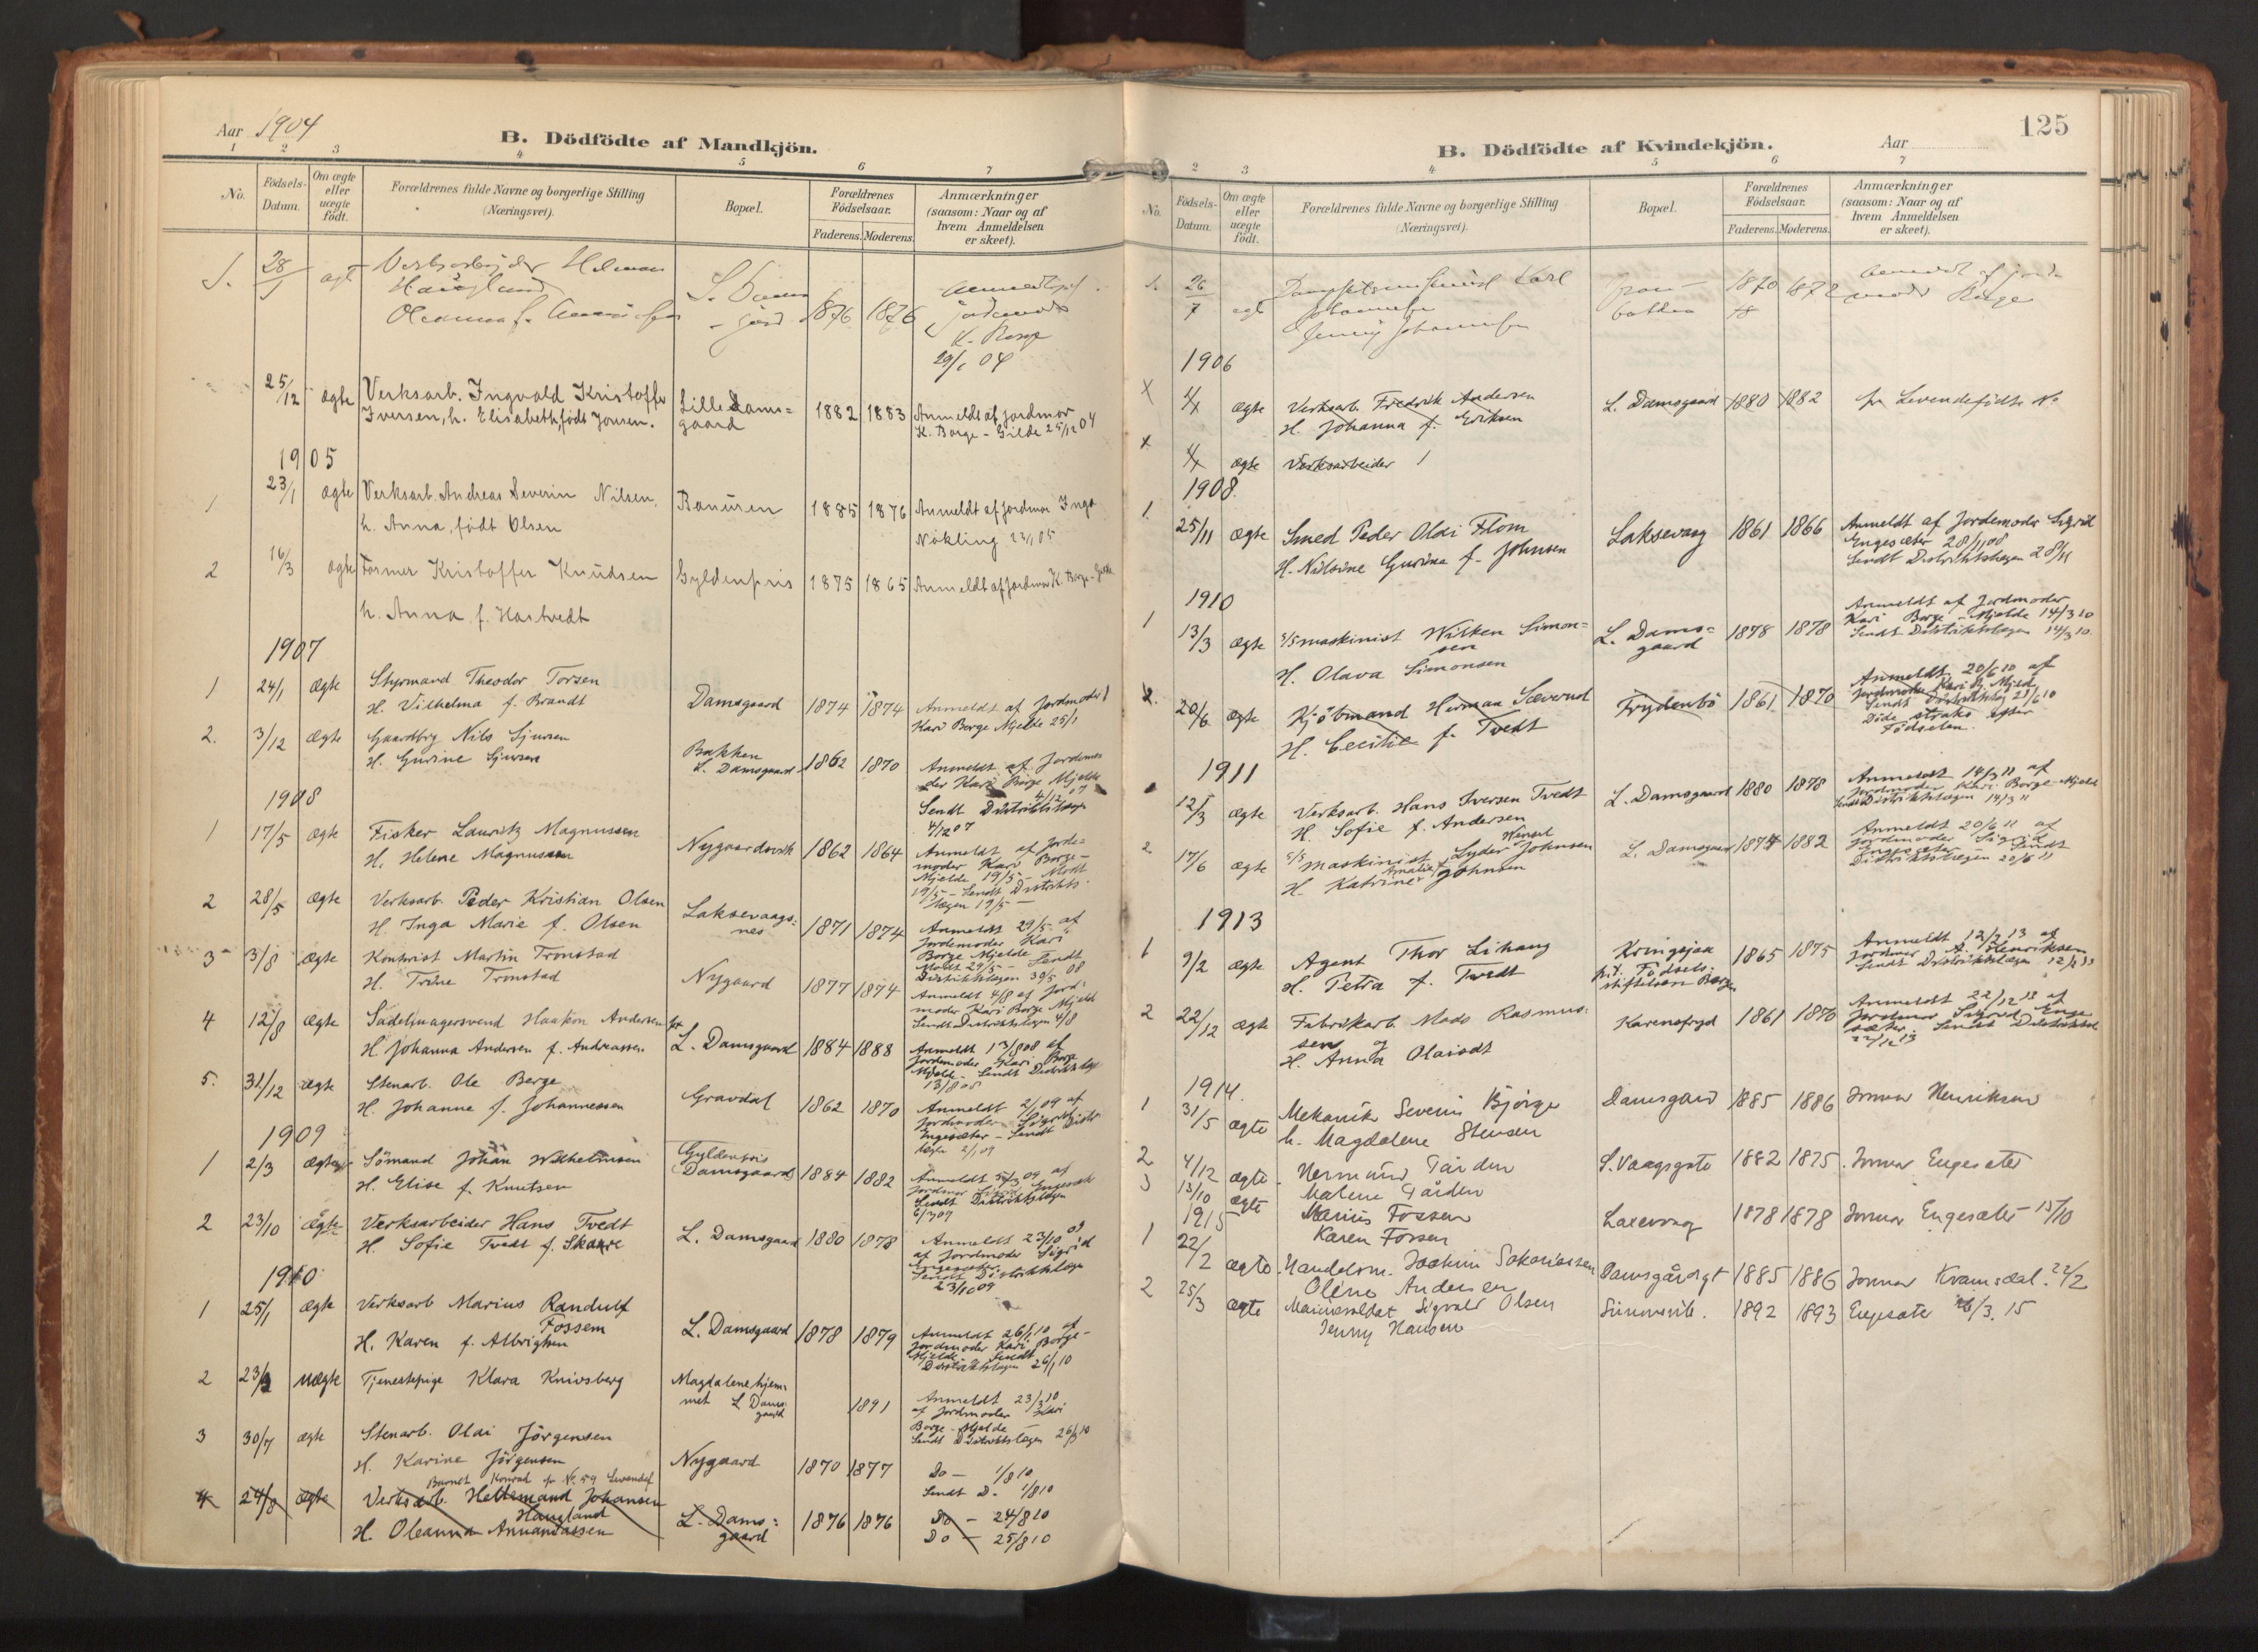 Aar 1904
B. Dödfödte af Mandkjön.
1 2 3 4 5 6 7
No.
Födsels-
Datum.
Om ægte
eller
uægte
født.
Forældrenes fulde Navne og borgerlige Stilling
(Næringsvei).
Bopæl.
Forældrenes
Födselsaar.
Faderens. Moderens.
Anmærkninger
(saasom: Naar og af
hvem Anmeldelsen
er skeet).
1. 28/1 ægt Verksarbeider
Haugland
1876 1876
29/1 04
25/12 ægte Verksarb. Ingvald Kristoffer
Iversen, h. Elisabeth, født Jonsen.
Lille Dams=
gaard
1882 1883
Anmeldt af jordmor
K. Borge - Gilde 25/12 04
1905
1 23/1 ægte Verksarb. Andreas Severin Nilsen,
h. Anna, født Olsen
1885 1876
Anmeldt af jordmor Inga
Nökling 23/1 05
2 16/3 ægte Former Kristoffer Knudsen
h. Anna f. Hastvedt
Gyldenpris 1875 1865
Anmeldt af jordmor K. Borge-
1907
1 24/1 ægte Styrmand Theodor Torsen
H. Vilhelma f. Brandt
Damsgaard 1874 1874
Anmeldt af Jordmoder
Kari Borge Mjelde 25/1
2. 3/12 ægte Gaardbrg Nils Sjursen
H. Gurine Sjursen
Bakken
L. Damsgaard 1862 1870
Anmeldt af Jordemo=
der Kari Borge Mjelde
4/12 07
Sendt Distriktslægen
4/12 07
1908
1 17/5 ægte Fisker Lauritz Magnussen
H. Helene Magnussen
Nygaardsvik 1862 1864
Anmeldt af Jorde=
moder Kari Borge-
Mjelde 19/5 - Modt
19/5 - Sendt Distrikts-
lægen 19/5 -
2 28/5 ægte Verksarb. Peder Kristian Olsen
H. Inga Marie f. Olsen
Laksevaags=
nes 1871 1874
Anmeldt 29/5 - af
Jordemoder Kari
Borge Mjelde
Modt 29/5 - Sendt
Distriktslægen 30/5 08
3 3/8 ægte Kontorist Martin Tronstad
H. Trine Tronstad
Nygaard 1877 1874
Anmeldt 4/8 af Jord=
moder Kari Borge Mjelde
Sendt Distriktslægen 4/8
4 12/8 ægte Sadelmagersvend Haakon Andersen
H. Johanna Andersen f. Andreassen
L. Damsgaard 1884 1888
Anmeldt 13/8 08 af
Jordmoder Kari Borge
Mjelde - Sendt Distriktslæge
13/8 08
5. 31/12 ægte Stenarb. Ole Berge
H. Johanne f. Johannessen
Gravdal 1862 1870
Anmeldt 2/1 09 af
Jordmoder Sigrid
Engesæter - Sendt Distr
lægen 2/1 09
1909
1 2/3 ægte Sömand Johan Wilhelmsen
H. Elise f. Knutsen
Gyldenpris
Damsgaard 1884 1882
Anmeldt 5/3 09 af
Jordmor Sigrid Engesæt
Sendt Distriktslægen
6/3 09
2 23/10 ægte Verksarbeider Hans Tvedt
H. Sofie Tvedt f. Skaare
L. Damsgaard 1880 1878
Anmeldt 23/10 09
af Jordmoder Sigrid
Engesæter
Sendt Distriktslægen
23/10 09
1910
1 25/1 ægte Verksarb Marius Randulf
Fossem
H. Karen f. Albrigtsen
L. Damsgaard 1878 1879
Anmeldt 26/1 10 af
Jordmoder Kari Borge-
Mjelde - Sendt
Distriktslægen 26/1 10
2 23/3 uægte Tjenestepige Klara Knivsberg
Magdalenehjem=
met L Dams=
gaard
1891
Anmeldt 23/3 10
af Jordmoder Kari
Borge - Mjelde -
Sendt Distriktslægen 26/3 10
3 30/7 ægte Stenarb. Olai Jörgensen
H. Karine Jörgensen
Nygaard 1870 1877
Do - 1/8 10
Sendt D. 1/8 10
Barnet Konrad fr No. 59 Levendef
4 24/8 ægte Verksarb. Hellemand Johansen
Haugland
H. Oleanna Annanıassen
L. Dams=
gaard
1876 1876
Do - 24/8 10
Do - 25/8 10
125
B. Dödfödte af Kvindekjön.
Aar
2 3 4 5 6 7
No.
Födsels-
Datum.
Om ægte
eller
uægte
födt.
Forældrenes fulde Navne og borgerlige Stilling
(Næringsvei).
Bopæl.
Forældrenes
Födselsaar.
Faderens. Moderens.
Anmærkninger
(saasom: Naar og af
hvem Anmeldelsen
er skeet).
1. 26/7 Karl
Johannesen
Jenny Johannesen
1870 1872
1906
x ægte Verksarb. Fredrik Andersen
H. Johanna f. Eriksen
L. Damsgaard 1880 1882
fr Levendefödte No
x ægte Verksarbeider
1908.
1. 25/11 ægte Smed Peder Olai Flom
H. Nilsine Gurine f. Johnsen
Laksevaag 1861 1866
Anmeldt af Jordemoder Sigrid
Engesæter 28/11 08
Sendt Distriktslægen 28/11
1910
1 13/3 ægte S/S maskinist Wilken Simon=
sen
H. Olava Simonsen
L. Dams=
gaard
1878 1878
Anmeldt af Jordmoder
Kari Borge - Mjelde 14/3 10
Sendt Distriktslægen 14/3 10.
2. 20/6 ægte Kjöbmand Herman Sæverud
H. Cecilie f. Tvedt
Frydenbö 1861 1870
Anmeldt 20/6 10 af
Jordmoder Kari B. Mjeld
Sendt Distriktslæg 21/6 10
Döde straks efter
Födselen.
1911
12/3 ægte Verksarb. Hans Iversen Tvedt
H. Sofie f. Andersen
L. Damsgaard 1880 1878
Anmeldt 14/3 11 af
Jordmoder Kari Borge-Mjelde
Sendt Distriktslægen 14/3 11
2 17/6 ægte S/S maskinist Lyder Wensel Johnsen
H. Katrine Amalie Johnsen
L. Damsgaard 1874 1882
Anmeldt 20/6 11 af
Jordmoder Sigrid
Engesæter - Sendt
Distriktslægen 20/6 11
1913
1 9/2 ægte Agent Thor Lihaug
H. Petra f. Tvedt
Kringsjaa
Födsels-
stiftelsen Bergen
1865 1875
Anmeldt 12/2 13 af
Jordmor A. Henriksen
Sendt Distriktslægen 12/2 13
2 22/12 ægte Fabrikarb. Mads Rasmus=
sen og
H. Anna Olaisdt
Karensfryd 1861 1870
Anmeldt 22/12 13 af
Jordmor Sigrid Enge
sæter. Sendt Distriktsl
22/12 13
1914.
1 31/5 ægte Mekanik Severin Bjørge
h. Magdalene Stensen
Damsgaard 1885 1886
Jormor Henriksen
2 4/12 ægte Hermund Gärden
Malene Gården
S. Vaagsgate 1882 1875. Jormor Engesæter
3 13/10 ægte Marius Fossen
Karen Fossen
Laxevaag 1878 1878 Jormor Engesæter 15/10
1915
1 22/2 ægte Handelsm. Joakim Sakariassen
Oline Andersen
Damsgårdsgt 1885 1886 Jormor Kramsdal. 22/2
2 25/3 ægte Marinesoldat Sigvald Olsen
Jenny Hansen
1892 1893 Engesæter 26/3. 15